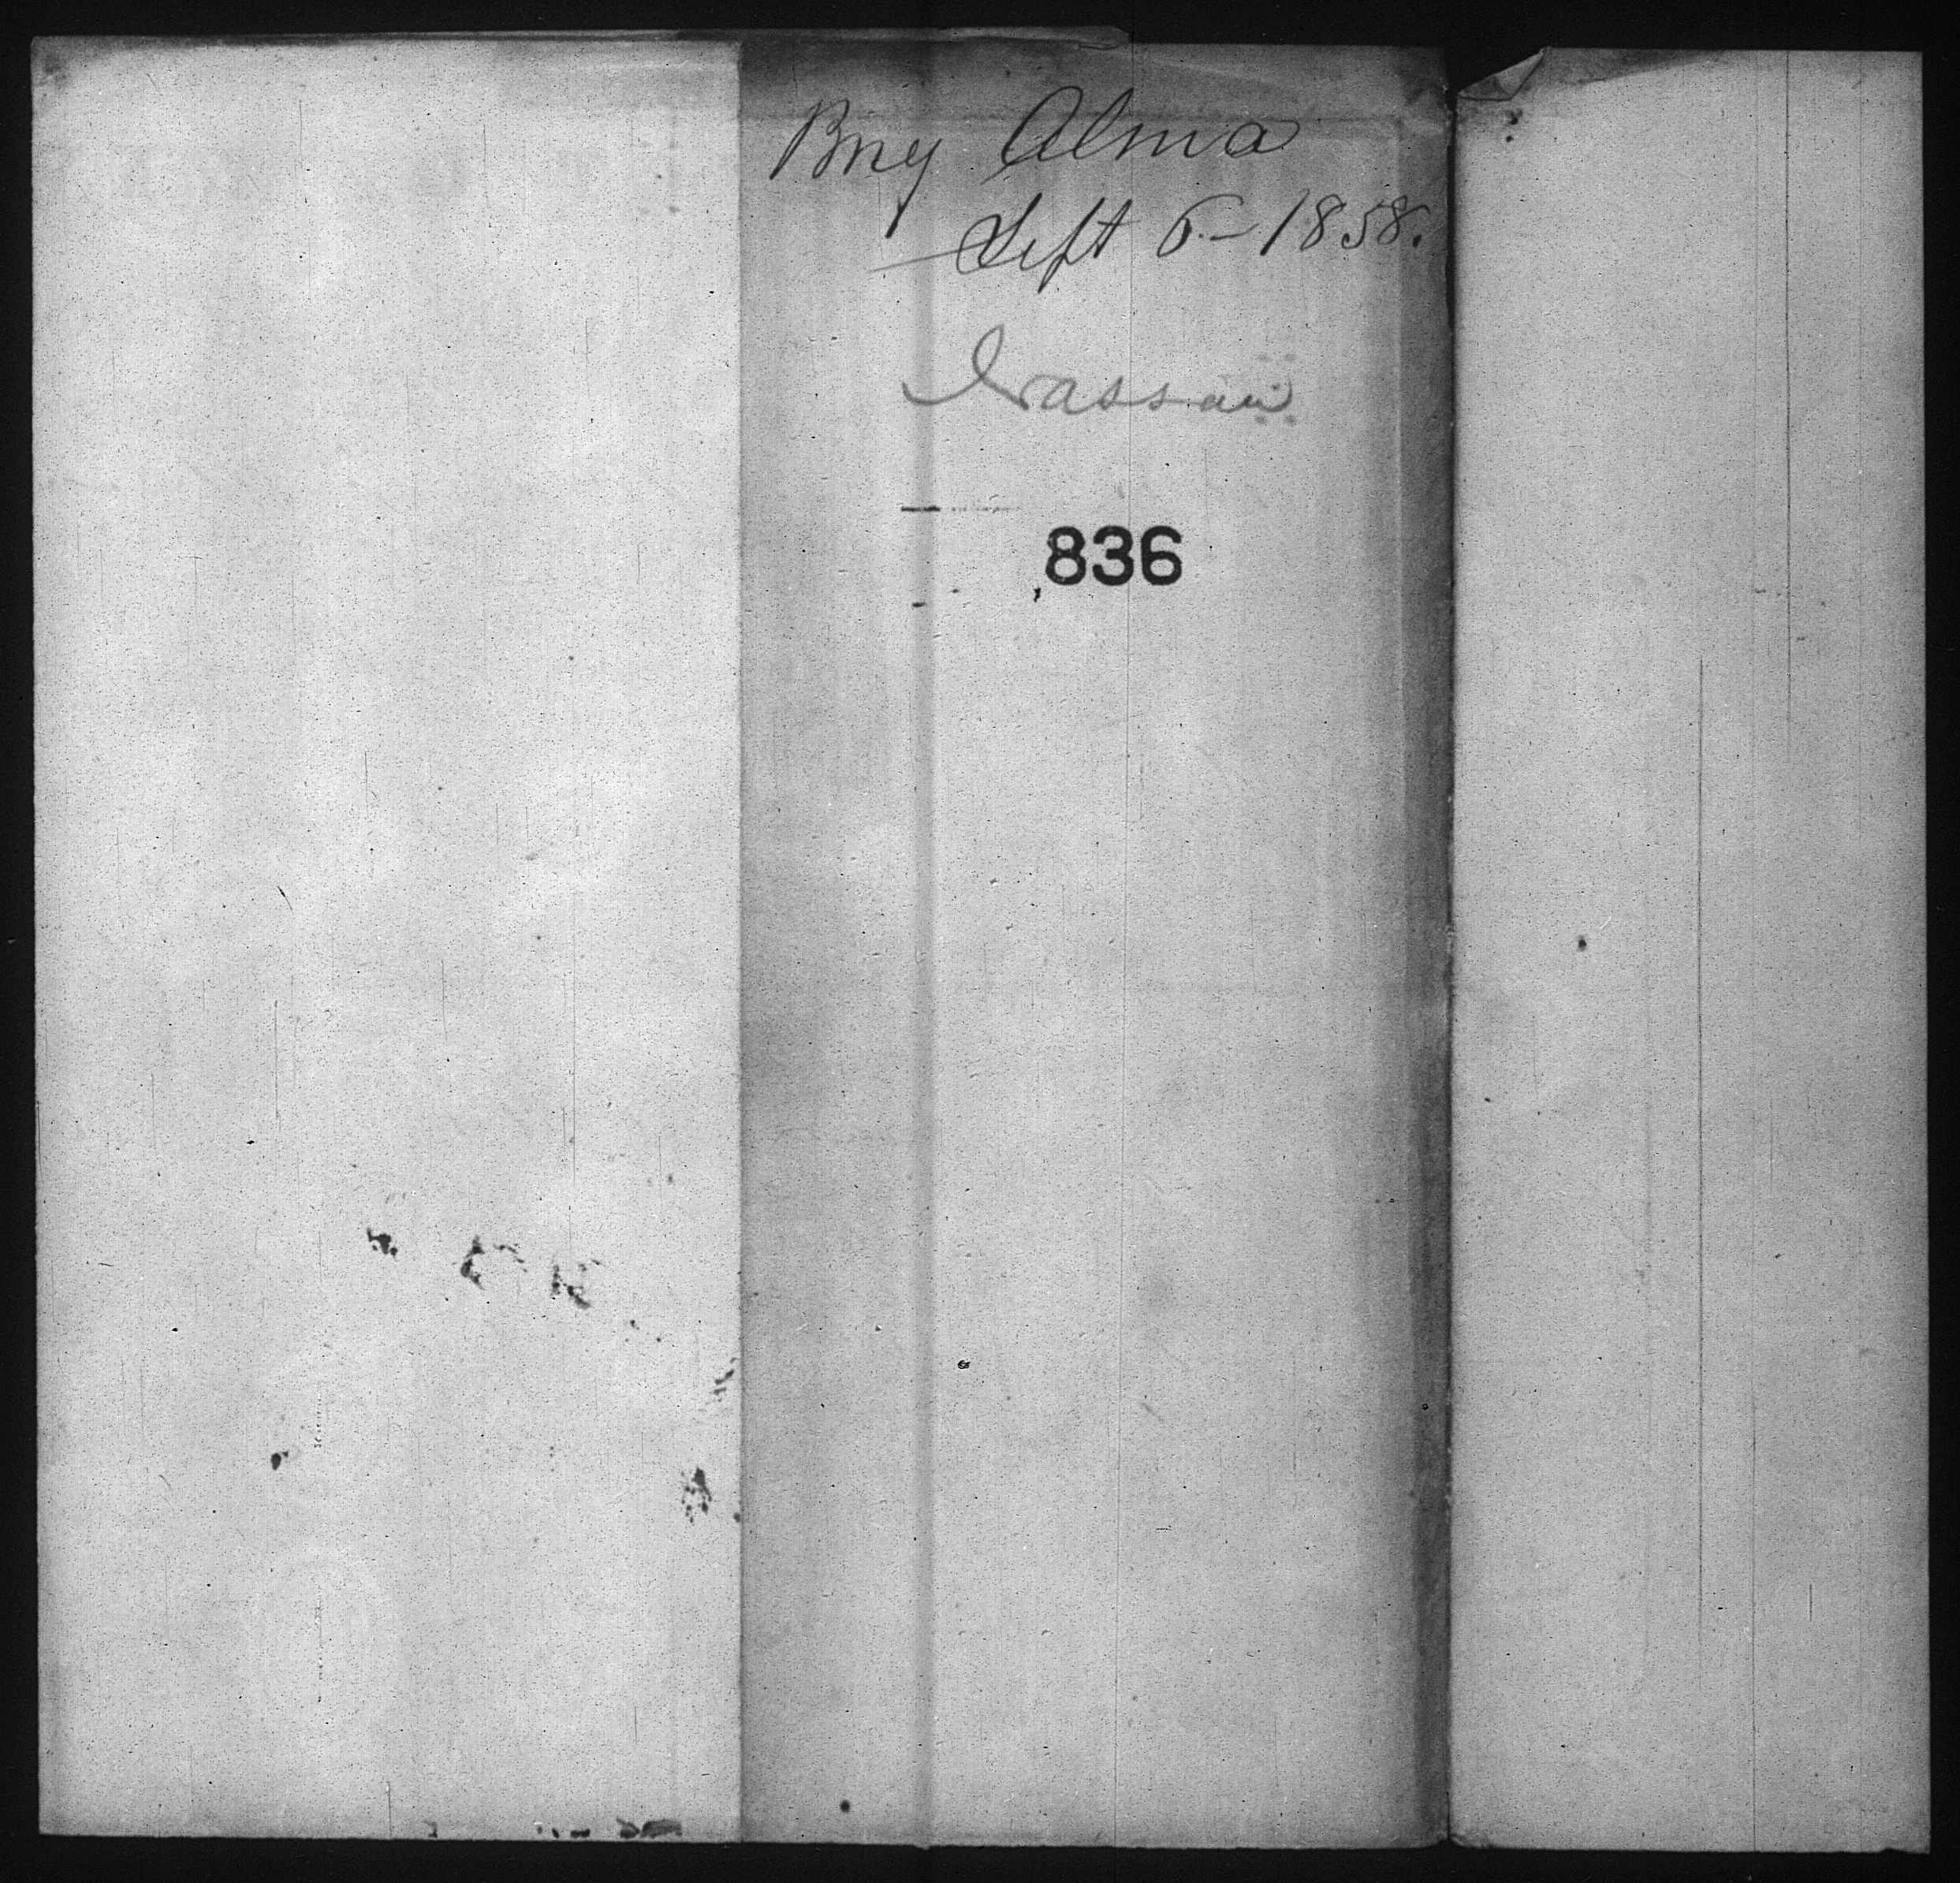 Brig Alma
Sept 6 - 1858.
Nassau
836